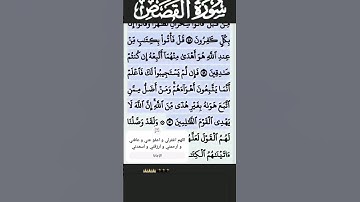 سُورَةُ القَصَصِ
بِكُلٍّ كَٰفِرُونَ ۝ قُلْ فَأْتُوا۟ بِكِتَٰبٍ مِّنْ
عِندِ ٱللَّهِ هُوَ أَهْدَىٰ مِنْهُمَآ أَتَّبِعْهُ إِن كُنتُمْ
صَٰدِقِينَ ۝ فَإِن لَّمْ يَسْتَجِيبُوا۟ لَكَ فَٱعْلَمْ
أَنَّمَا يَتَّبِعُونَ أَهْوَآءَهُمْ وَمَنْ أَضَلُّ مِمَّنِ
ٱتَّبَعَ هَوَىٰهُ بِغَيْرِ هُدًى مِّنَ ٱللَّهِ إِنَّ ٱللَّهَ لَا
يَهْدِى ٱلْقَوْمَ ٱلظَّٰلِمِينَ ۝ وَلَقَدْ وَصَّلْنَا
لَهُمُ ٱلْقَوْلَ لَعَلَّهُمْ
ءَاتَيْنَٰهُمُ ٱلْكِتَٰبَ
اللهم اغفرلي و اعفو عني و عافني
و ارحمني و ارزقني و اسعدني